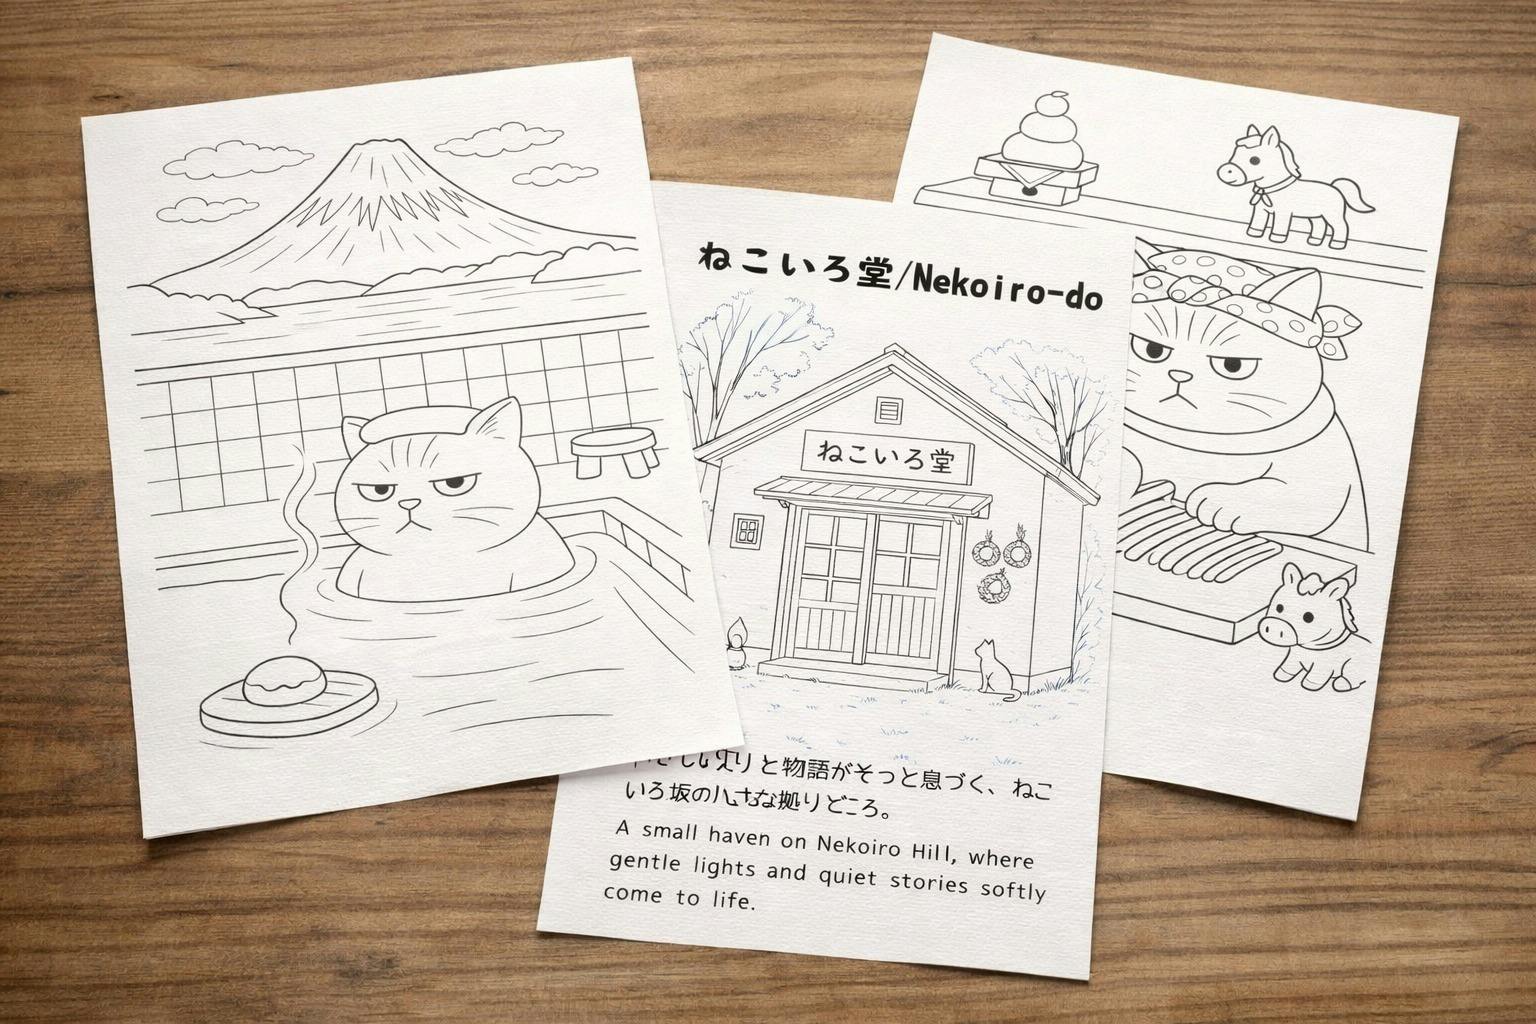 ねこいろ堂/Nekoiro-do
ねこいろ堂
と物語がそっと息づく、ねこ
いろ坂の拠りどころ。
A small haven on Nekoiro Hill, where
gentle lights and quiet stories softly
come to life.